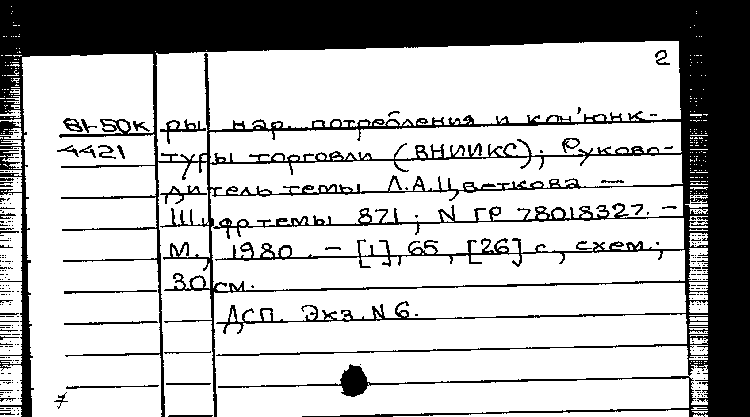 2
81-50к ры нар. потребления и кон'юнк-
4421 туры торговли (ВНИИКС); Руково-
дитель темы Л.А.Цветкова —
Шифр темы 871; N ГР 78018327. –
М., 1980. – [1], 65, [26] с., схем.;
30 см.
ДСП. Экз. N 6.
7